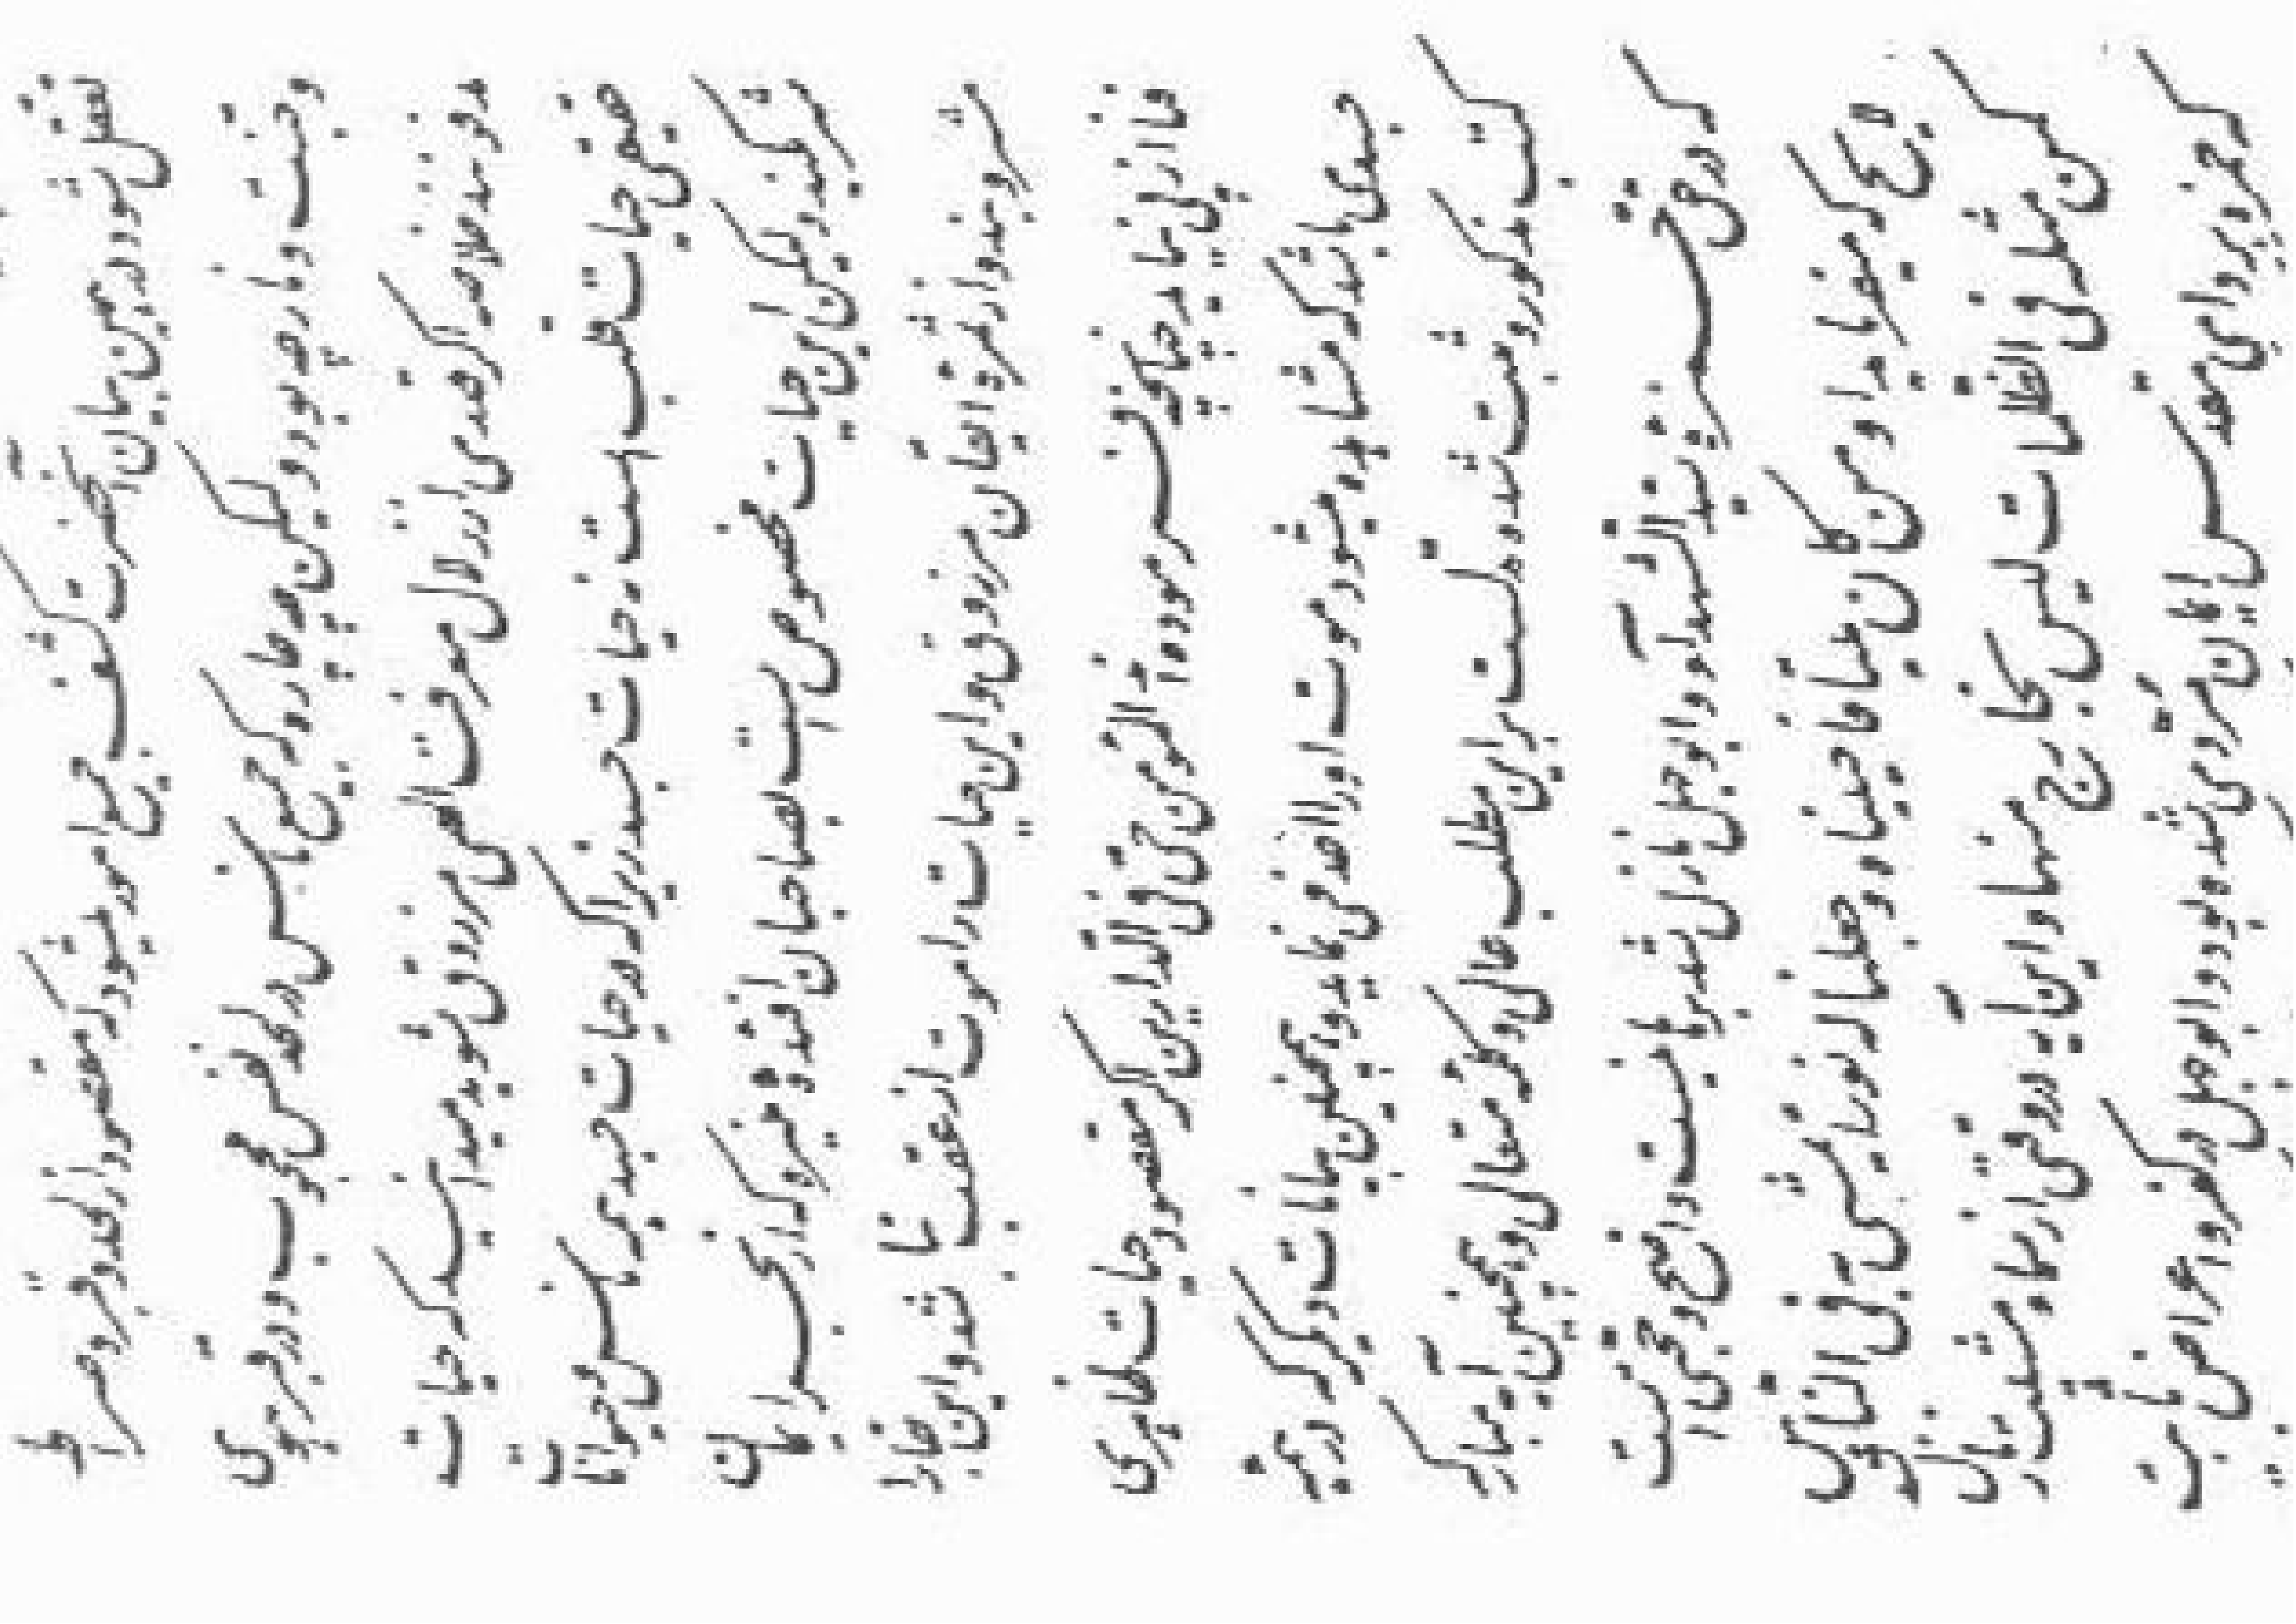 تعقّل شود در همین بیان آنحضرت کشف جمیع امور میشود که مقصود از لحد و قبر و صراط
و جنّت و نار چه بود ولیکن چه چاره که جمیع ناس در لحد نفس محجوب و در قبر هوی
مدفونند خلاصه اگر قدری از زلال معرفت الهی مرزوق شوید میدانید که حیات
حقیقی حیات قلب است نه حیات جسد زیرا که در حیات جسد همه ناس و حیوانات
شریکند ولیکن این حیات مخصوص است بصاحبان افئده منیره که از بحر ایمان
شاربند و از ثمره ایقان مرزوق و این حیات را موت از عقب نباشد و این بقا را
فنا از پی نیاید چنانچه فرموده‌اند المؤمن حیّ فی الدّارین اگر مقصود حیات ظاهری
جسدی باشد که مشاهده میشود موت او را اخذ مینماید و همچنین بیانات دیگر که در همه
کتب مذکور و ثبت شده مدلّ است بر این مطلب عالی و کلمه متعالی و همچنین آیه مبارکه
که در حقّ حمزه سیّد الشهداء و ابوجهل نازل شد برهانیست واضح و حجّتی است
لائح که میفرماید او من کان میتاً فاحییناه و جعلنا له نوراً یمشی به فی النّاس
کمن مثله فی الظّلمات لیس بخارج منها و این آیه در وقتی از سماء مشیّت نازل شد
که حمزه برداء مقدّس ایمان مردّی شده بود و ابوجهل در کفر و اعراض ثابت